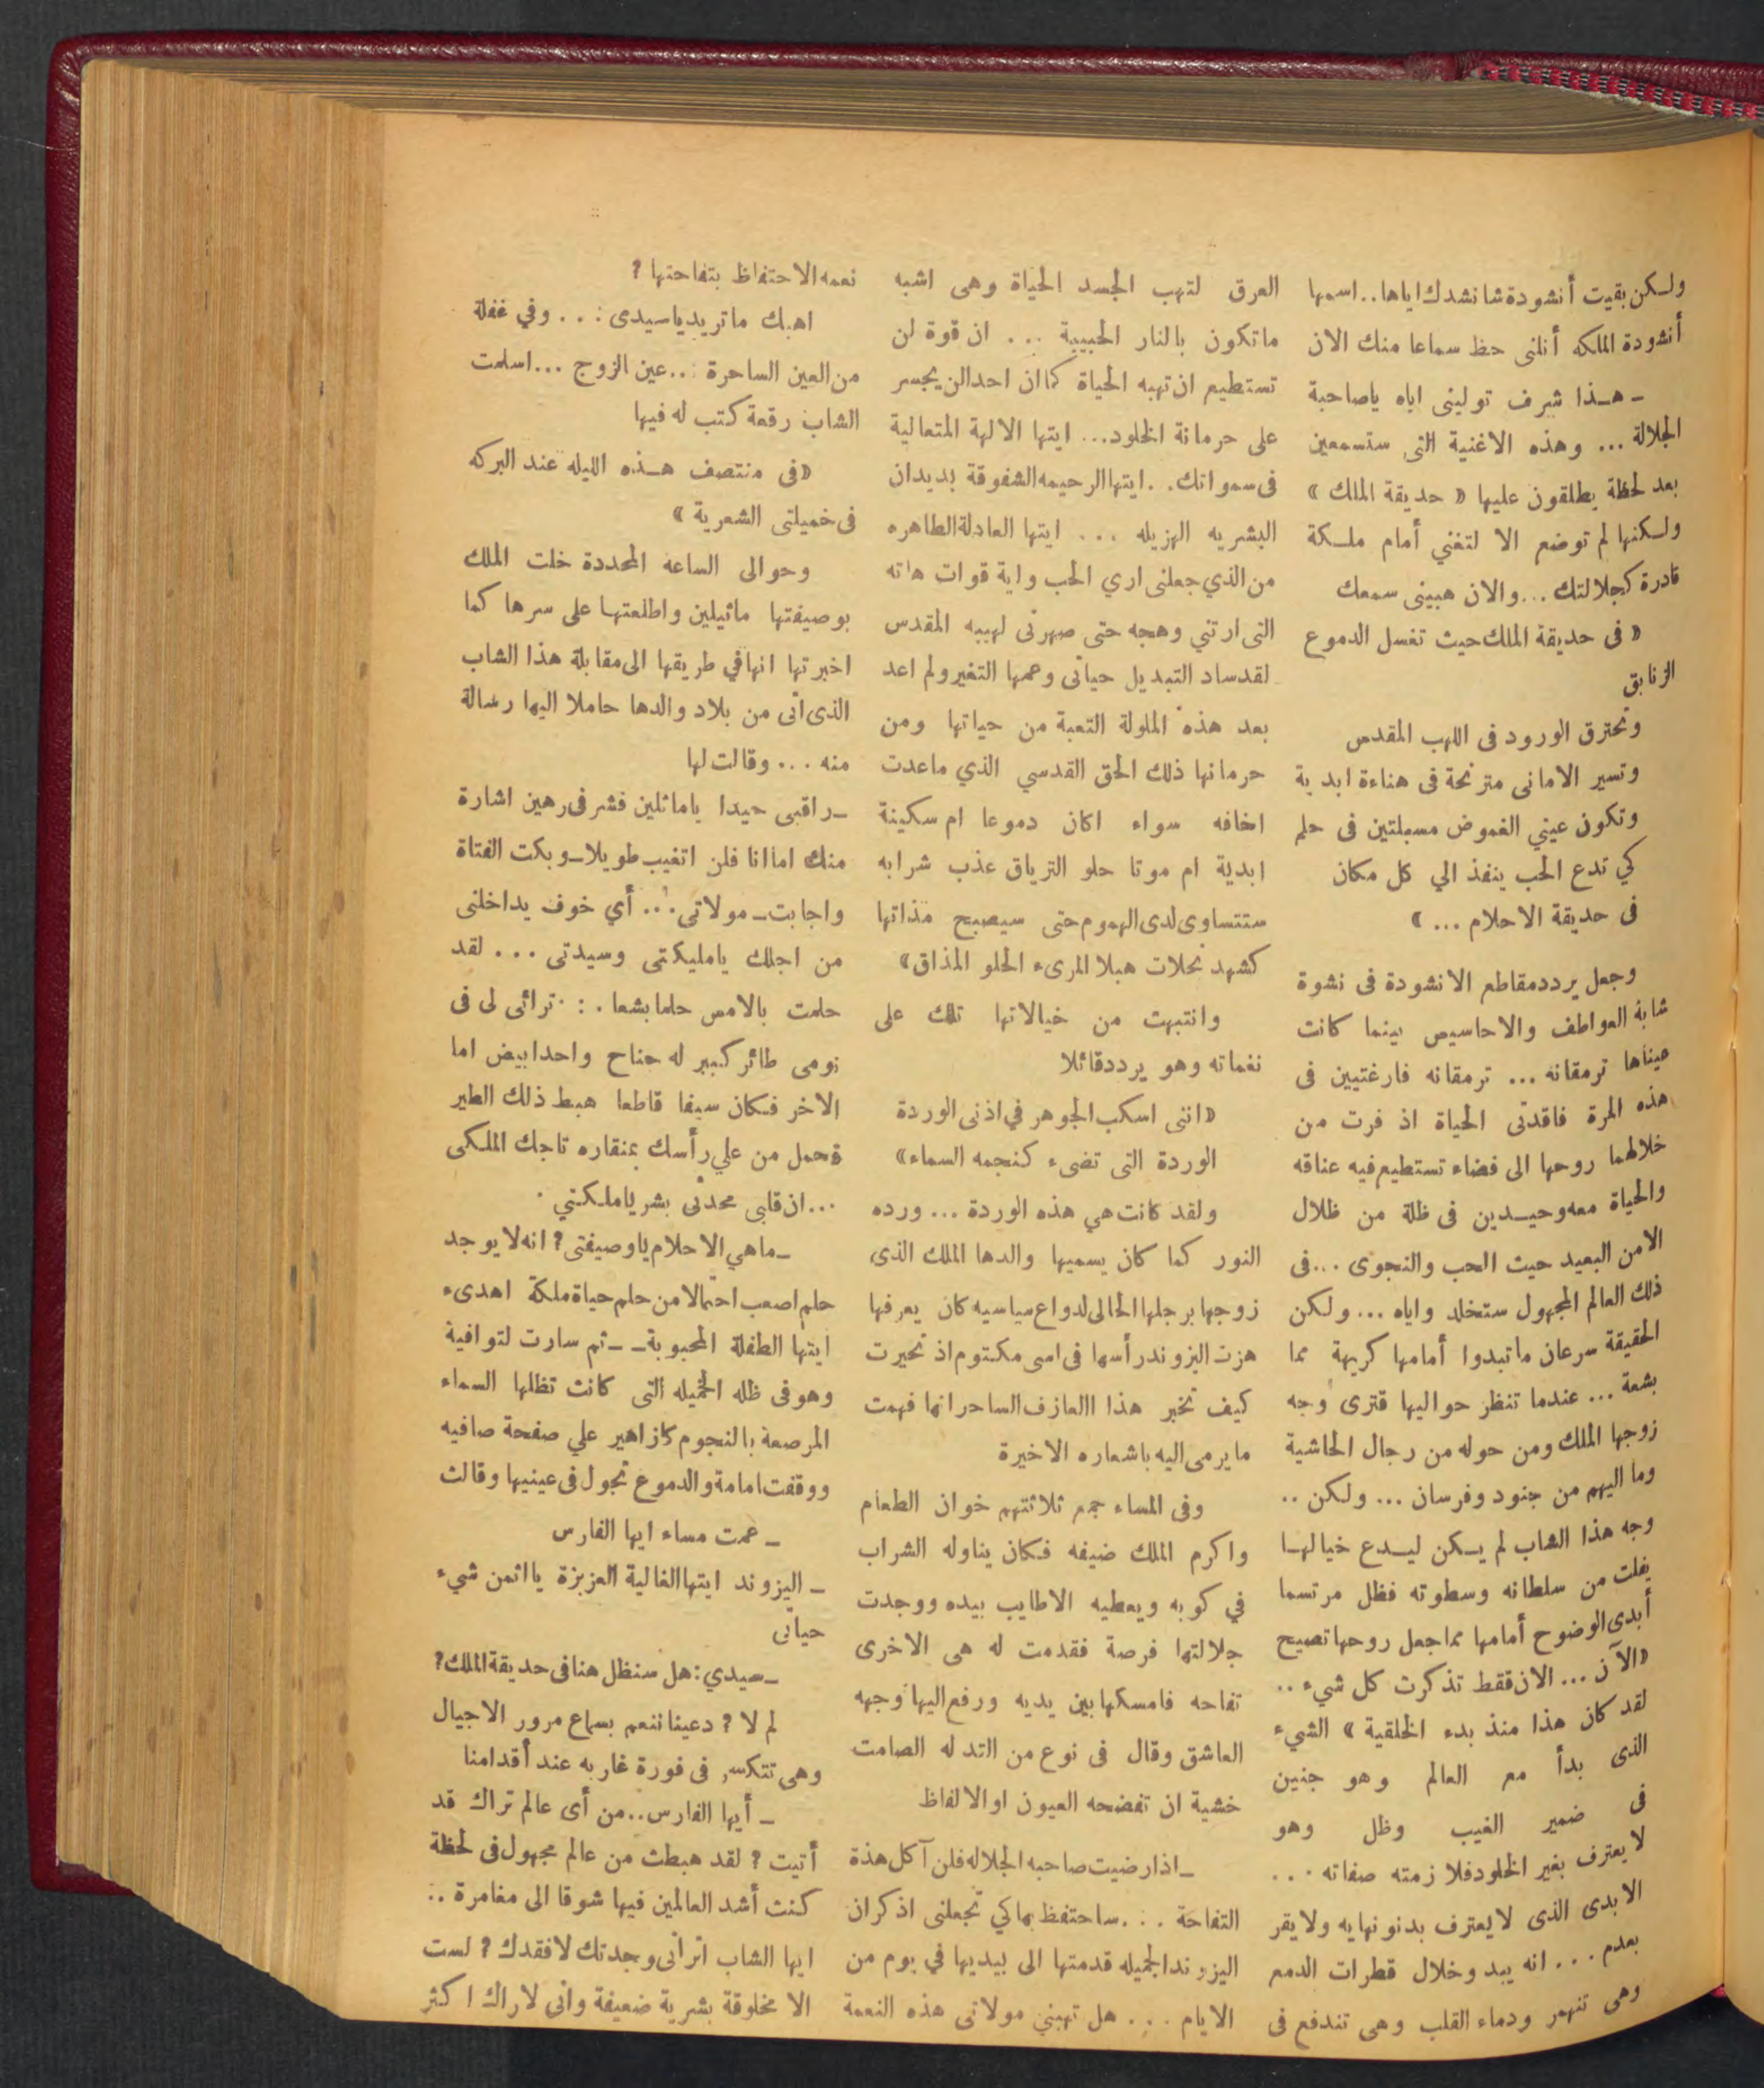 ولكن بقيت أنشودة شانشدك اياها.. اسمها
أنشودة الملكه أنلنى حظ سماعا منك الان
ـ هـذا شرف تولينى اياه ياصاحبة
الجلالة ... وهذه الاغنية التى ستسمعين
بعد لحظة يطلقون عليها « حديقة الملك »
ولكنها لم توضع الا لتغني أمام ملكة
قادرة كجلالتك ... والان هبينى سمعك
« فى حديقة الملك حيث تغسل الدموع
الزنابق
وتحترق الورود فى اللهب المقدس
وتسير الامانى مترنحة فى هناءة ابدية
وتكون عيني الغموض مسبلتين فى حلم
كي تدع الحب ينفذ الي كل مكان
فى حديقة الاحلام ... »
وجعل يردد مقاطع الانشودة فى نشوة
شابة العواطف والاحاسيس بينما كانت
عيناها ترمقانه ... ترمقانه فارغتيين فى
هذه المرة فاقدتى الحياة اذ فرت من
خلالهما روحها الى فضاء تستطيع فيه عناقه
والحياة معه وحيـدين فى ظلة من ظلال
الامن البعيد حيث الحب والنجوى ... فى
ذلك العالم المجهول ستخلد واياه ... ولكن
الحقيقة سرعان ماتبدوا أمامها كريهة مما
بشعة ... عندما تنظر حواليها فترى وجه
زوجها الملك ومن حوله من رجال الحاشية
وما اليهم من جنود وفرسان ... ولكن ..
وجه هذا الشاب لم يـكن ليـدع خيالهـا
يفلت من سلطانه وسطوته فظل مرتسما
أبدى الوضوح أمامها مما جعل روحها تصيح
«الآن ... الان فقط تذكرت كل شيء ..
لقد كان هذا منذ بدء الخلقية » الشيء
الذى بدأ مع العالم وهو جنين
فى ضمير الغيب وظل وهو
لا يعترف بغير الخلود فلا زمته صفاته ...
الابدى الذى لا يعترف بدنو نهايه ولا يقر
بعدم ... انه يبد وخلال قطرات الدمع
وهى تنهمر ودماء القلب وهى تندفع فى
العرق لتهب الجسد الحياة وهى اشبه
ماتكون بالنار الحبيبة ... ان قوة لن
تستطيع ان تهبه الحياة كما ان احدالن يجسر
على حرمانة الخلود... ايتها الالهة المتعالية
فى سمواتك. . ايتها الرحيمه الشفوقة بديدان
البشريه الهزيله ... ايتها العادلة الطاهره
من الذي جعلنى اري الحب واية قوات هاته
التى ارتني وهجه حتى صهرنى لهيبه المقدس
لقد ساد التبديل حياتى وعمها التغير ولم اعد
بعد هذه الملولة التعبة من حياتها ومن
حرمانها ذلك الحق القدسي الذي ماعدت
اخافه سواء اكان دموعا ام سكينة
ابدية ام موتا حلو الترياق عذب شرابه
ستتساوى لدى الهموم حتى سيصبح مذاتها
كشهد نحلات هبلا المرىء الحلو المذاق»
وانتبهت من خيالاتها تلك على
نغماته وهو يردد قائلا
«اننى اسكب الجوهر في اذنى الوردة
الوردة التى تضىء كنجمه السماء»
ولقد كانت هي هذه الوردة ... ورده
النور كما كان يسميها والدها الملك الذى
زوجها برجلها الحالى لدواع سياسيه كان يعرفها
هزت اليزوند رأسها فى اسى مكتوم اذ تحيرت
كيف تخبر هذا االعازف الساحر انها فهمت
ما يرمى اليه باشعاره الاخيرة
وفى المساء جمع ثلاثتهم خوان الطعام
واكرم الملك ضيفه فكان يناوله الشراب
في كوبه ويعطيه الاطايب بيده ووجدت
جلالتها فرصة فقدمت له هى الاخرى
تفاحه فامسكها بين يديه ورفع اليها وجهه
العاشق وقال فى نوع من التدله الصامت
خشية ان تفضحه العيون او الالفاظ
ـ اذا رضيت صاحبه الجلاله فلن آكل هذة
التفاحة ... ساحتفظ بها كي تجعلنى اذكر ان
اليزوند الجميله قدمتها الى بيديها في يوم من
الايام ... هل تهبني مولاتى هذه النعمة
نعمه الاحتفاظ بتفاحتها ؟
اهبك ماتريد ياسيدى : .. وفي غفلة
من العين الساحرة ... عين الزوج ... اسلمت
الشاب رقعة كتب له فيها
«فى منتصف هـذه الليله عند البركه
فى خميلتى الشعرية »
وحوالى الساعه المحددة خلت الملك
بوصيفتها ماثيلين واطلعتها على سرها كما
اخبرتها انها في طريقها الى مقابلة هذا الشاب
الذى اتى من بلاد والدها حاملا اليها رسالة
منه ... وقالت لها
ـ راقبى جيدا ياماثلين فشرفى رهين اشارة
منك اما انا فلن اتغيب طويلا ـ وبكت الفتاة
واجابت ـ مولاتى ... أي خوف يداخلنى
من اجلك يامليكتى وسيدتى ... لقد
حلمت بالامس حلما بشعا . : . ترائى لى فى
نومى طائر كبير له جناح واحد ابيض اما
الاخر فكان سيفا قاطعا هبط ذلك الطير
فحمل من علي رأسك بمنقاره تاجك الملكى
... ان قلبى محدثى بشر ياملكتي .
ـ ماهي الاحلام ياوصيفتى ؟ انه لا يوجد
حلم اصعب احتمالا من حلم حياة ملكة اهدىء
ايتها الطفلة المحبوبة ـ ـ ثم سارت لتوافية
وهو فى ظله الخميله التى كانت تظلها السماء
المرصعة بالنجوم كازاهير علي صفحة صافيه
ووقفت امامة والدموع تجول فى عينيها وقالت
ـ عمت مساء ايها الفارس
ـ اليزوند ايتها الغالية العزيزة يااثمن شيء
حياتى
ـ سيدي : هل سنظل هنا فى حديقة الملك ؟
لم لا ؟ دعينا ننعم بسماع مرور الاجيال
وهى تتكسر فى فورة غاربه عند أقدامنا
ـ أيها الفارس .. من أى عالم تراك قد
أتيت ؟ لقد هبطت من عالم مجهول فى لحظة
كنت أشد العالمين فيها شوقا الى مغامرة ..
ايها الشاب اترانى وجدتك لافقدك ؟ لست
الا مخلوقة بشرية ضعيفة وانى لاراك اكثر